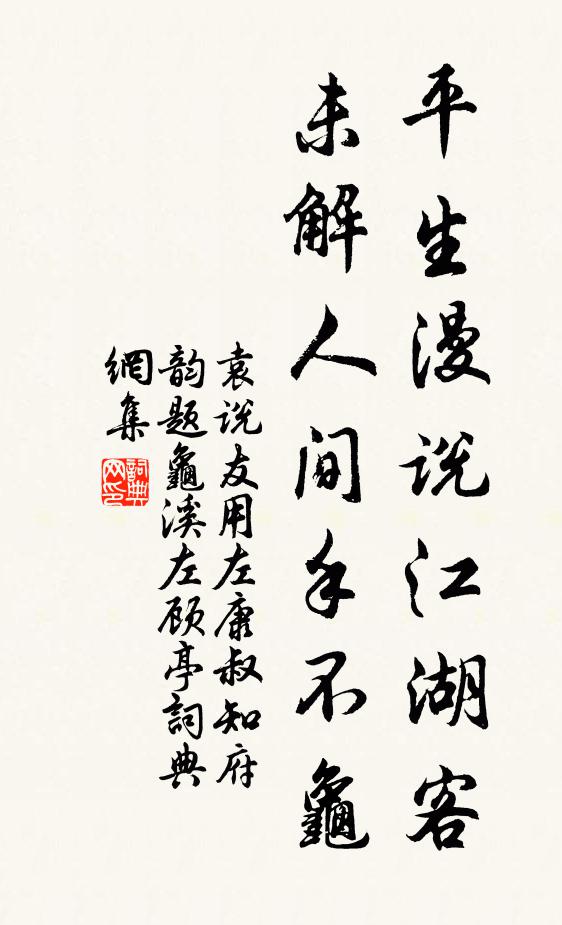 平生漫说江湖客
未解人间手不龜
袁说友用左康叔知府
韵题龜溪左顾亭詞典
網集
詞典网印